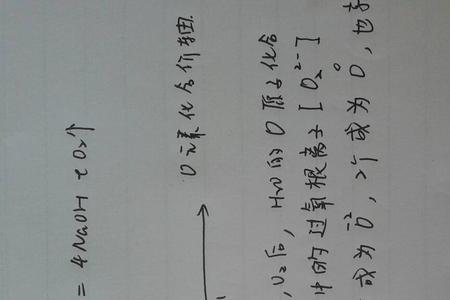 = 4NaOH + O₂↑
O元素化合价
H₂O的O原子化合
中的过氧根离子[O₂²⁻]
成为 O⁻², 2个成为 O⁰, 也